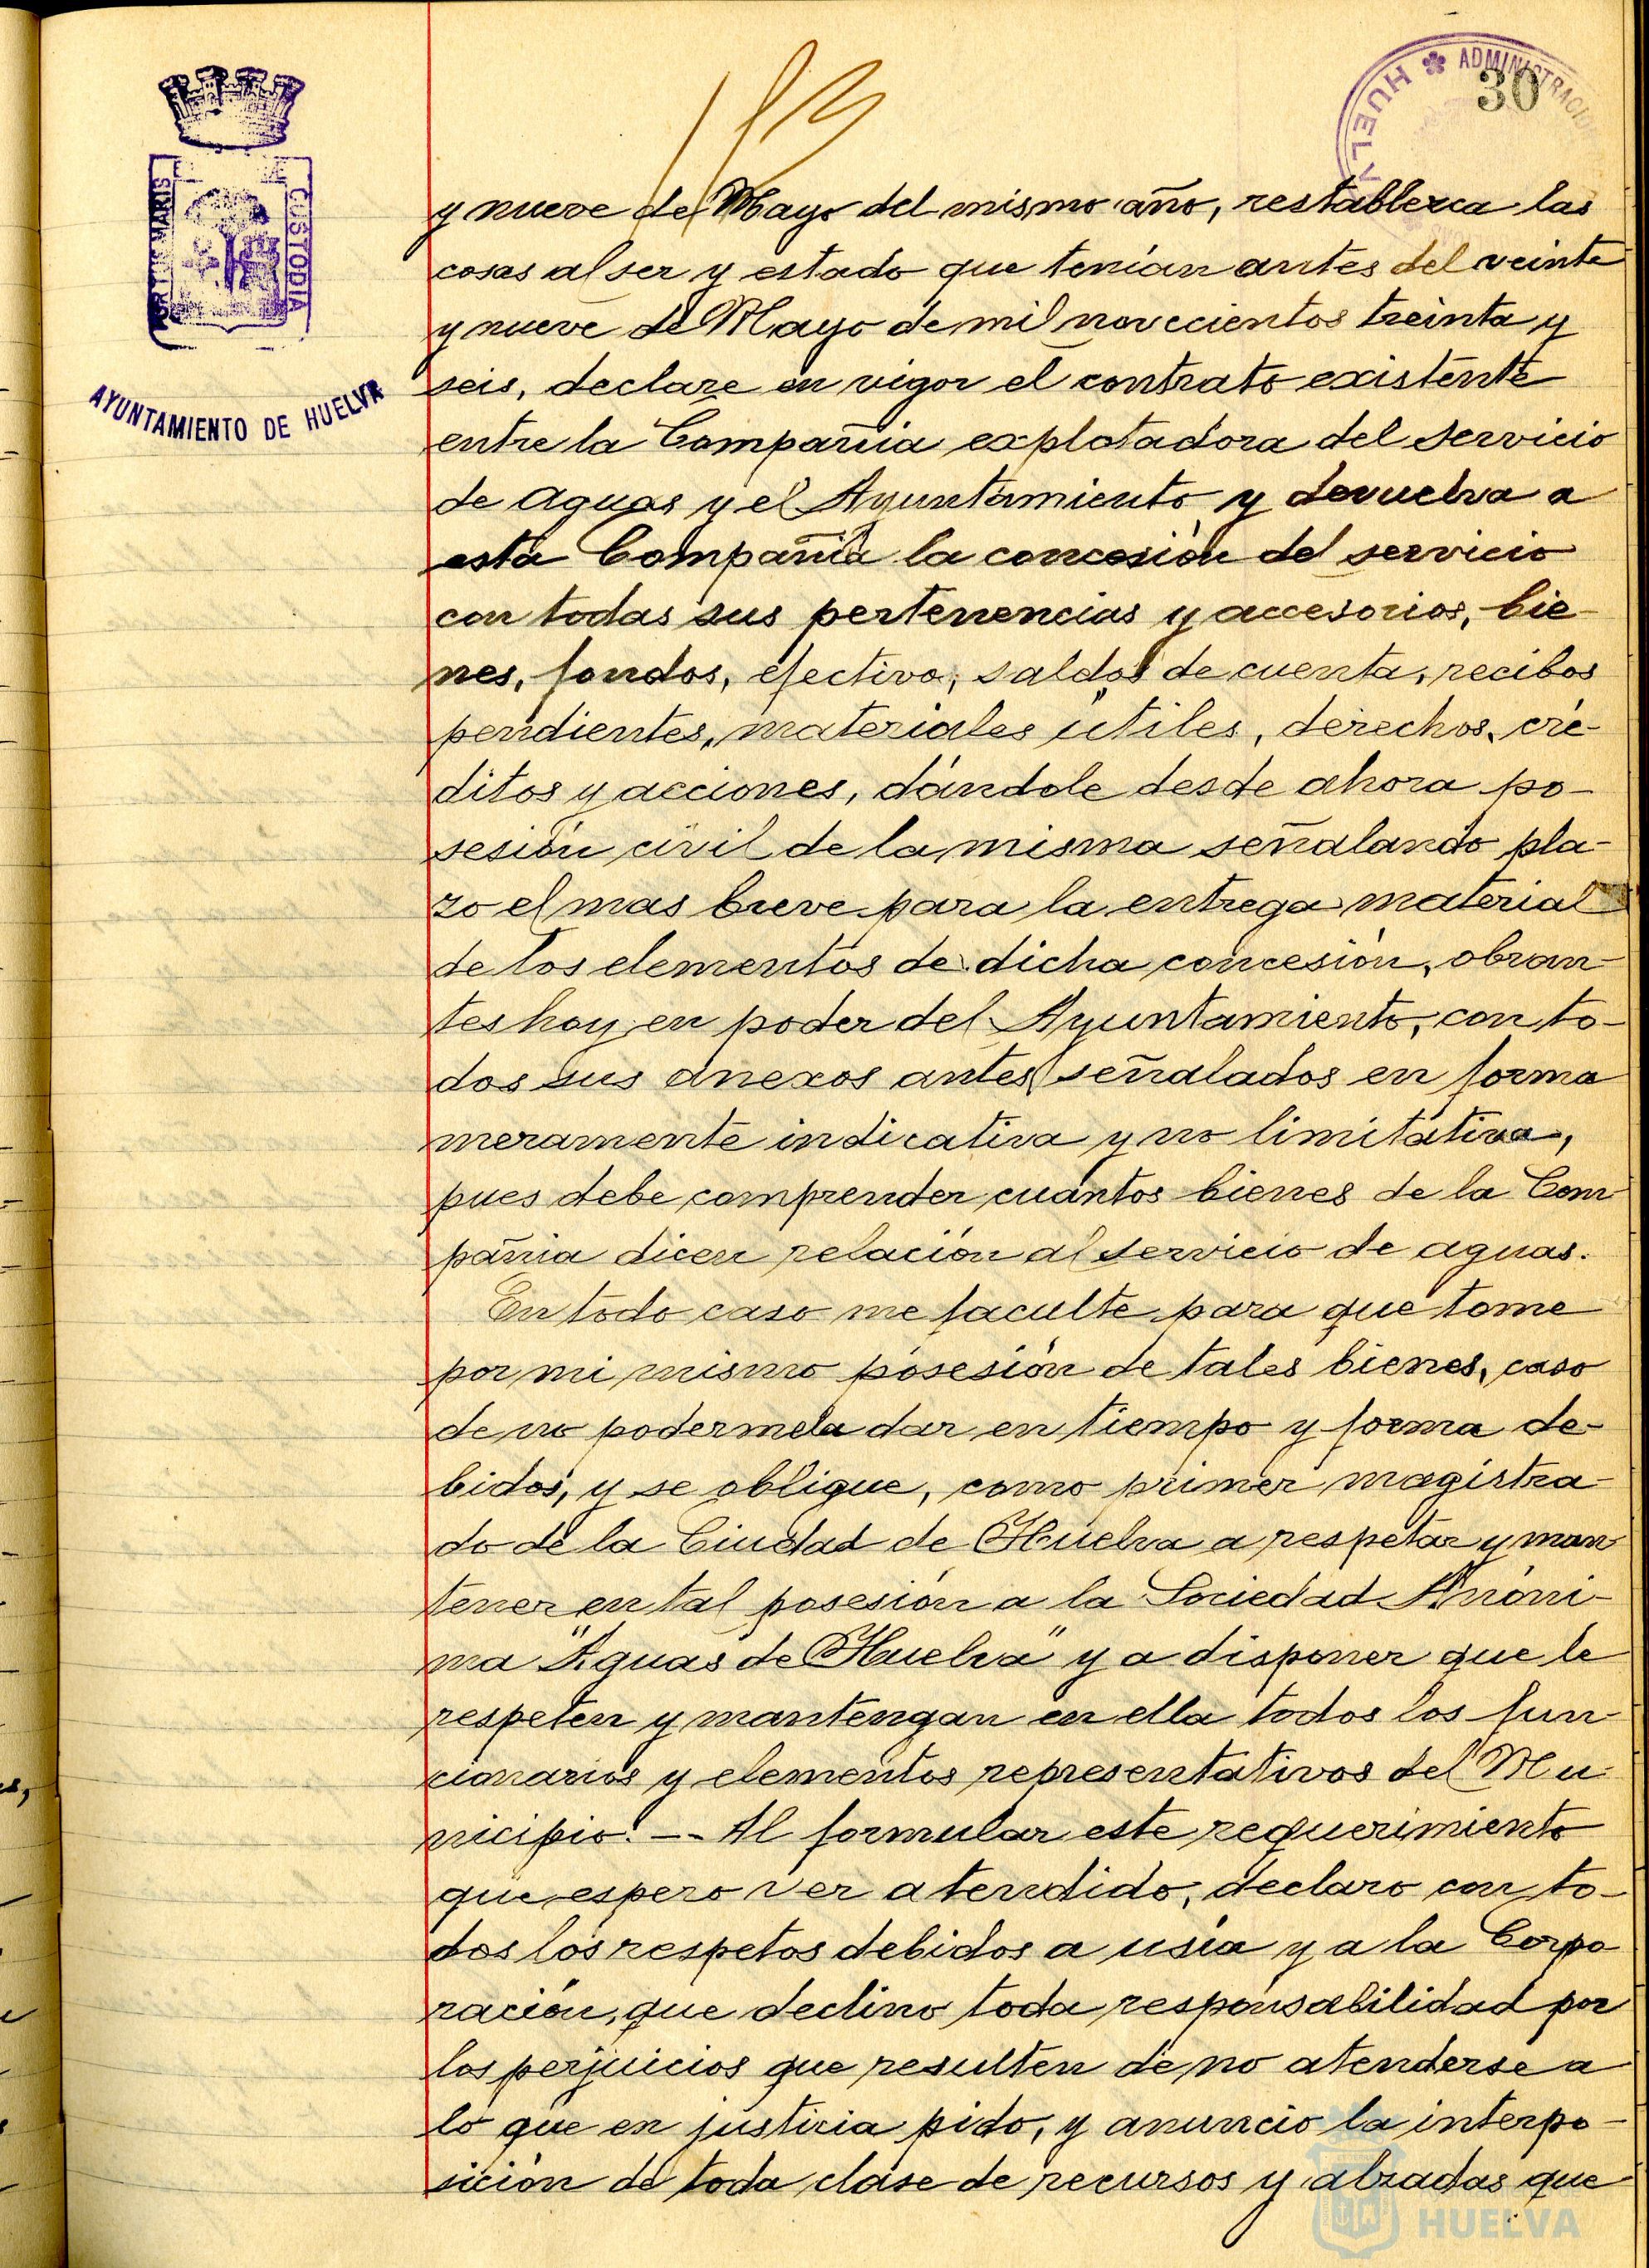 30
HUELVA ✽ ADMINISTRACION
PORTUS MARIS
CUSTODIA
AYUNTAMIENTO DE HUELVA
y nueve de Mayo del mismo año, restablezca las
cosas al ser y estado que tenían antes del veinte
y nueve de Mayo de mil novecientos treinta y
seis, declare en vigor el contrato existente
entre la Compañia explotadora del servicio
de aguas y el Ayuntamiento y devuelva a
esta Compañia la concesión del servicio
con todas sus pertenencias y accesorios, bie-
nes, fondos, efectivo, saldos de cuenta, recibos
pendientes, materiales útiles, derechos, cré-
ditos y acciones, dándole desde ahora po-
sesión civil de la misma señalando pla-
zo el mas breve para la entrega material
de los elementos de dicha concesión, obran-
tes hoy en poder del Ayuntamiento, con to-
dos sus anexos antes señalados en forma
meramente indicativa y no limitativa,
pues debe comprender cuantos bienes de la Com
pañia dicen relación al servicio de aguas.
En todo caso me faculte para que tome
por mi mismo posesión de tales bienes, caso
de no podermela dar en tiempo y forma de-
bidos, y se obligue, como primer magistra-
do de la Ciudad de Huelva a respetar y man
tener en tal posesión a la Sociedad Anóni-
ma "Aguas de Huelva" y a disponer que le
respeten y mantengan en ella todos los fun-
cionarios y elementos representativos del Mu-
nicipio. -- Al formular este requerimiento
que espero ver atendido, declaro con to-
dos los respetos debidos a usia y a la Corpo
ración, que declino toda responsabilidad por
los perjuicios que resulten de no atenderse a
lo que en justicia pido, y anuncio la interpo-
sición de toda clase de recursos y alzadas que
HUELVA